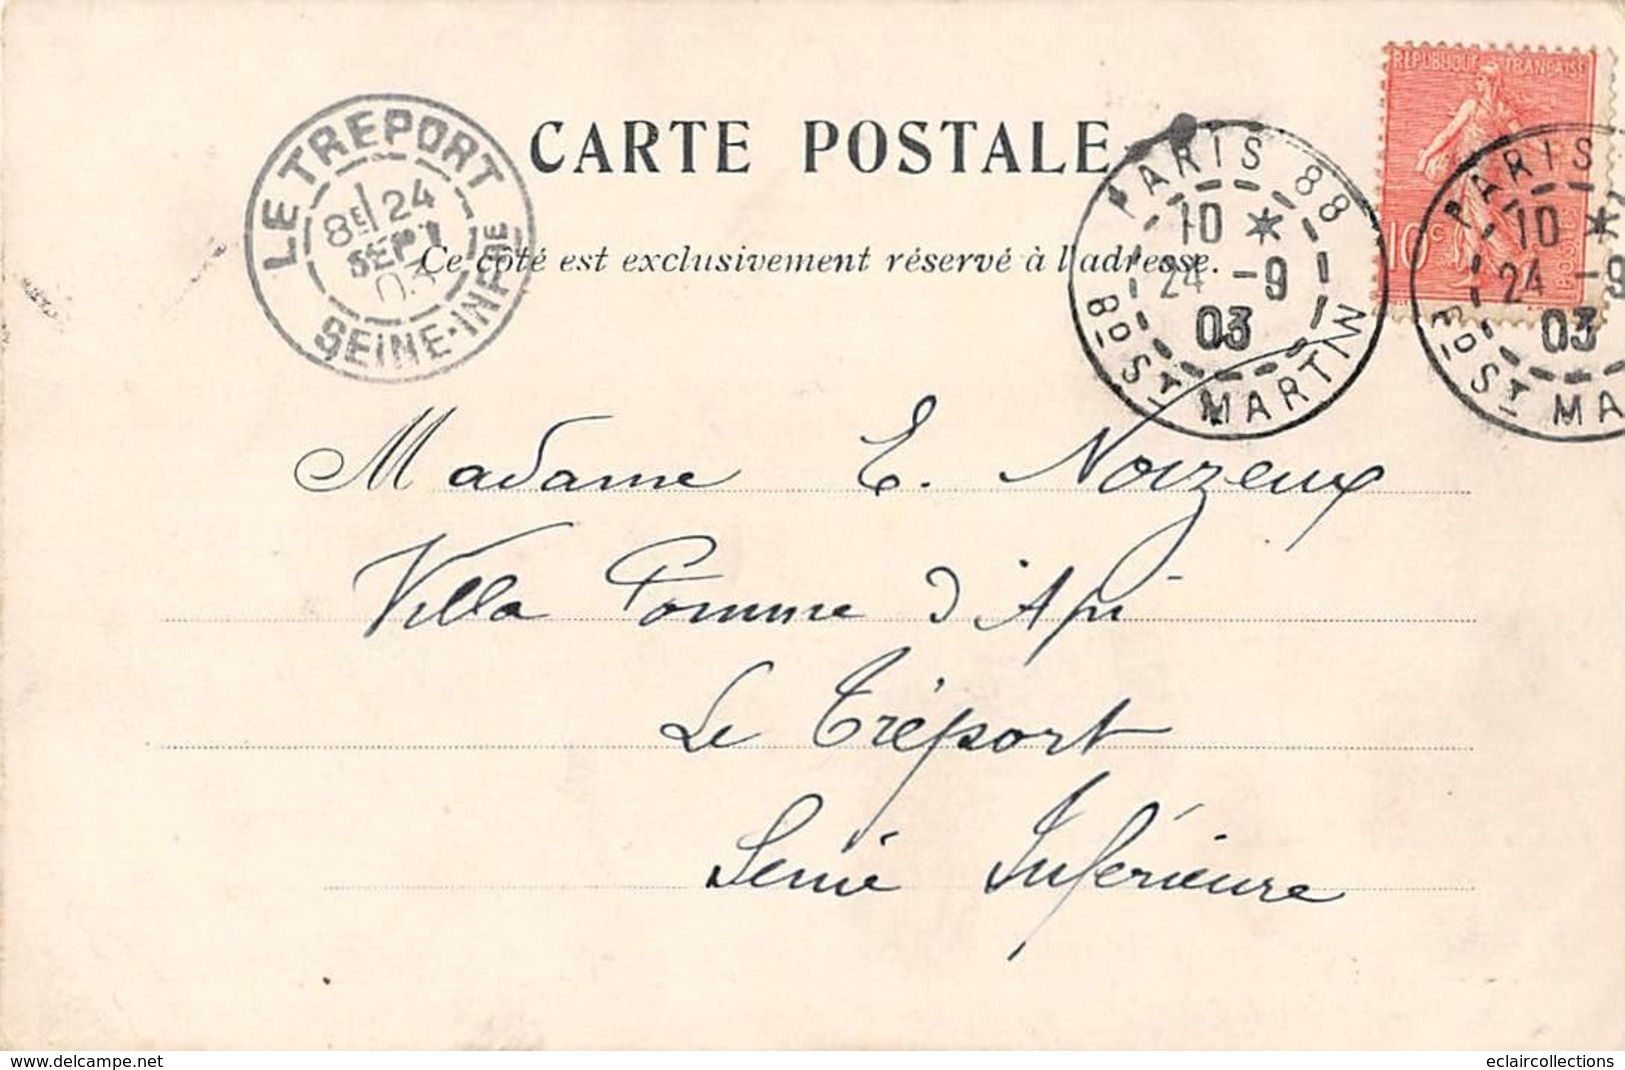 RÉPUBLIQUE FRANÇAISE
10c POSTES
CARTE POSTALE
LE TREPORT
8E 24
SEPT
03
SEINE-INFRE
PARIS 88
10 *
24 -9
03
Bd St MARTIN
PARIS
10 *
24 -9
03
Bd St MA
Ce côté est exclusivement réservé à l'adresse.
Madame E. Noizeux
Villa Pomme d'Api
Le Tréport
Seine Inférieure
www.delcampe.net
eclaircollections